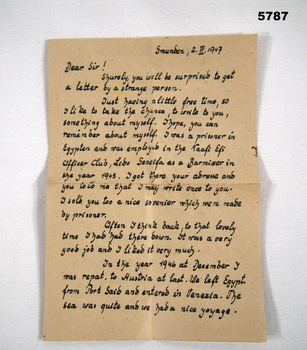 5787
Gmunden, 2.IV.1947
Dear Sir!
Shurely, you will be surprised to get
a letter by a strange person.
Just having a little free time, so
I like to take the chance, to write to you,
something about myself. I hope, you can
remember about myself. I was a prisoner in
Egypten and was employed in the
Officer Club, as a Barmixer in
the year 1945. I got there your adress and
you told me that I may write once to you.
I sold you too a nice souvenier which were made
by prisoner.
Often I think back, to that lovely
time I had had there down. It was a very
good job and I liked it very much.
In the year 1946 at December I
was repat. to Austria at last. We left Egypt
from Port Said and entered in Venezia. The
sea was quite and we had a nice yoyage.